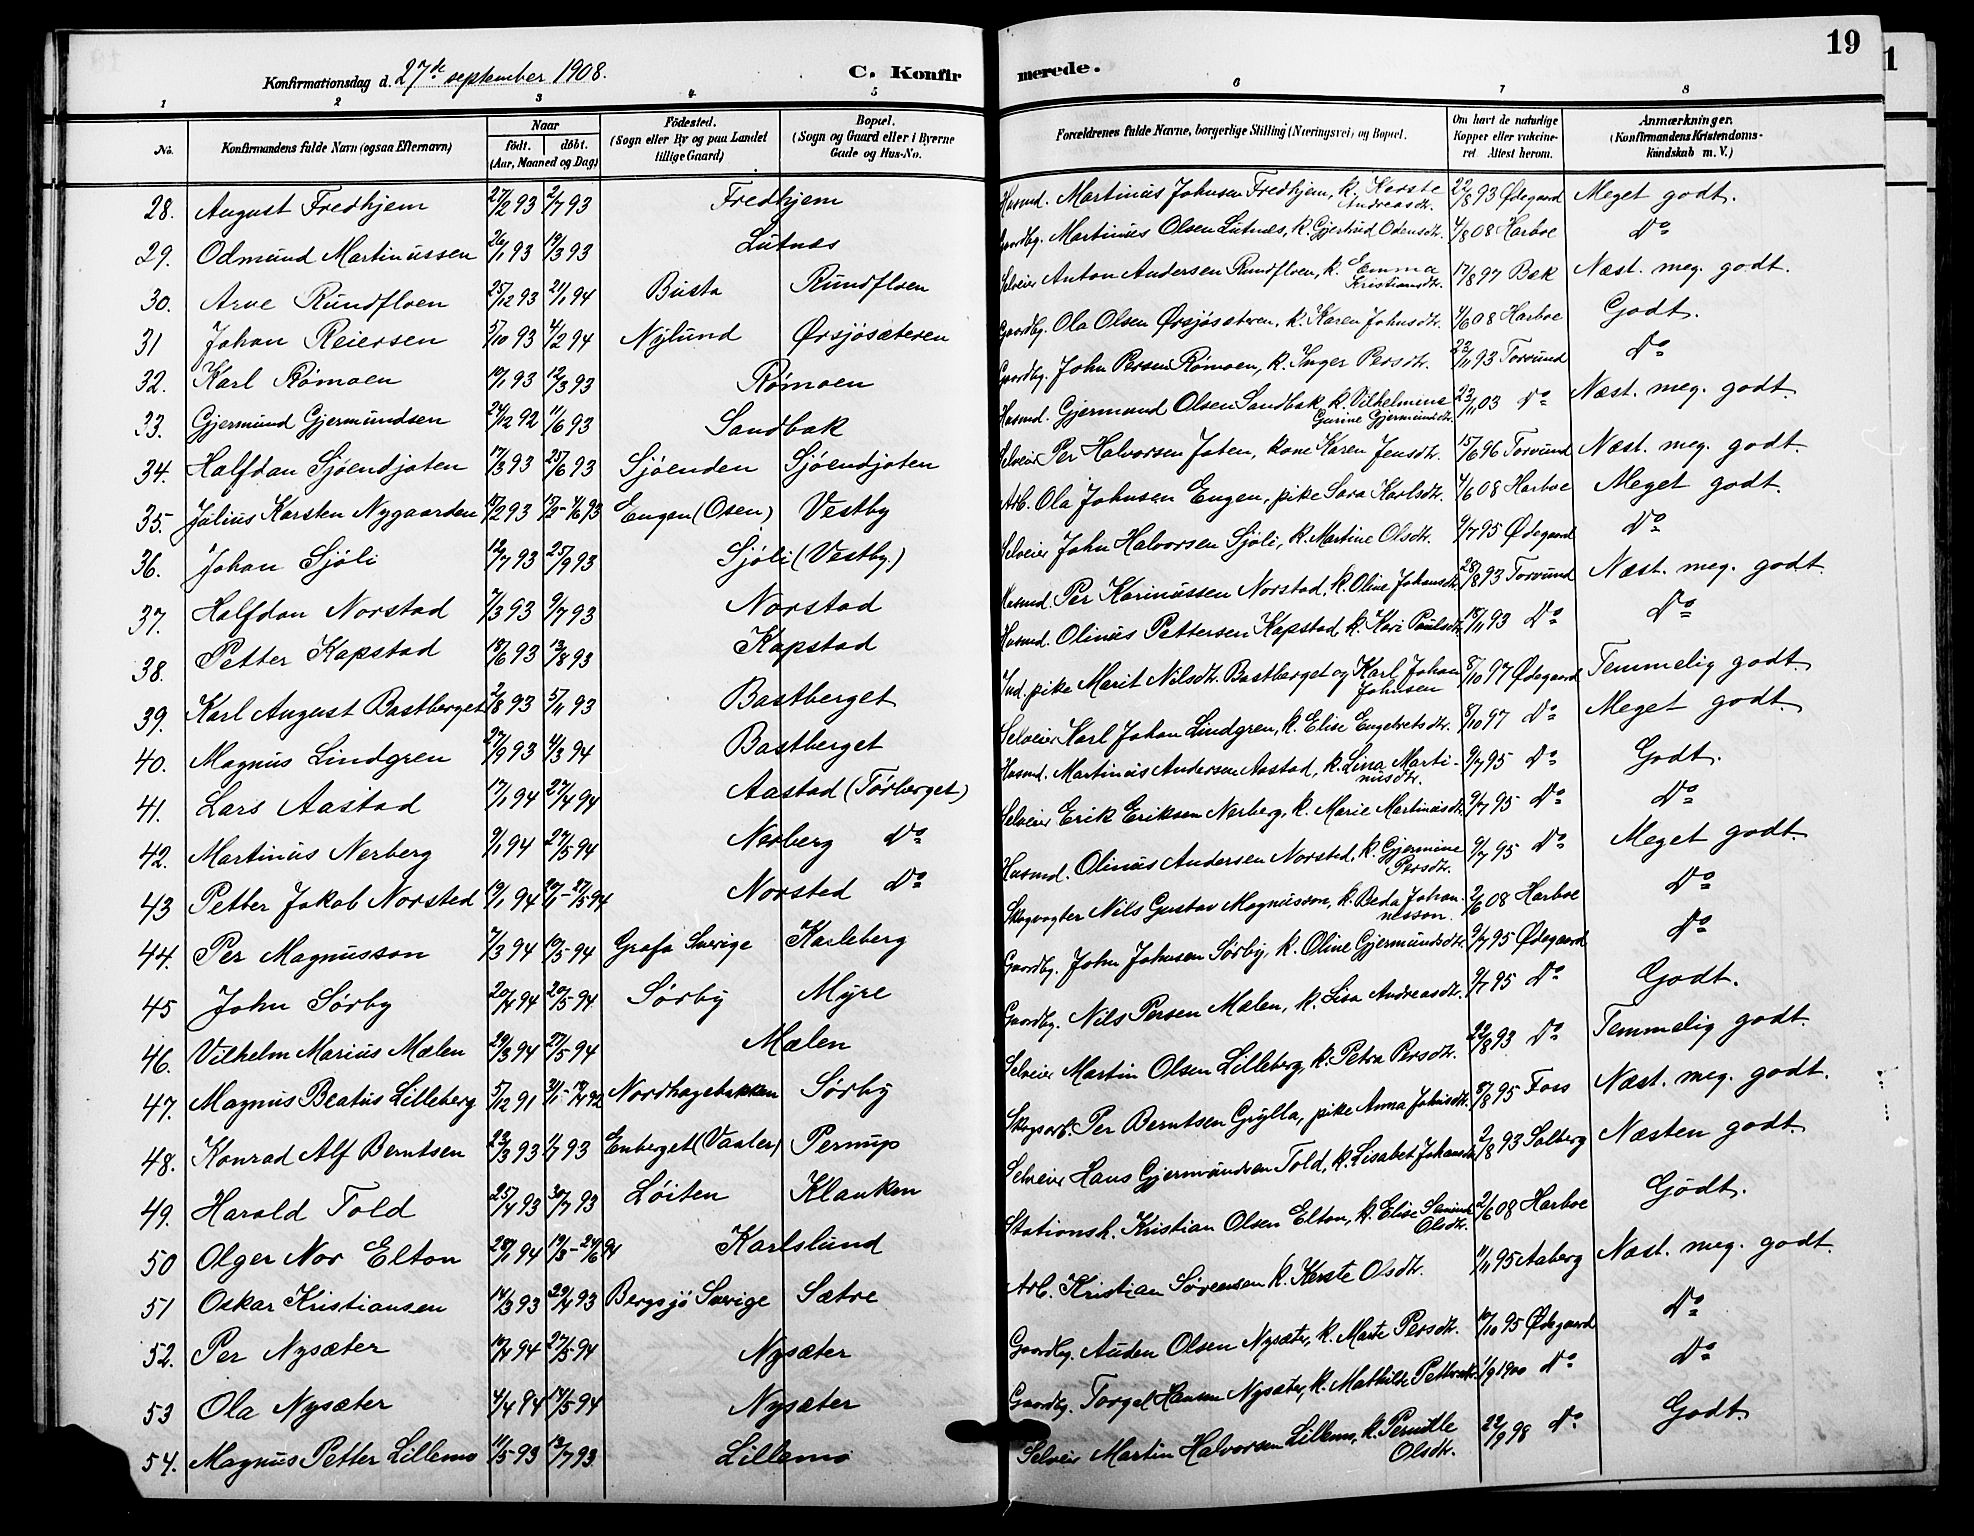 19
1
Konfirmationsdag d. 27de september 1908.
C. Konfirmerede.
1 2 3 4 5 6 7 8
No. | Konfirmandens fulde Navn (ogsaa Efternavn) | Naar født. døbt. (Aar, Maaned og Dag) | Fødested. (Sogn eller By og paa Landet tillige Gaard) | Bopæl. (Sogn og Gaard eller i Byerne Gade og Hus-No. | Forældrenes fulde Navne, borgerlige Stilling (Næringsvei) og Bopæl. | Om havt de naturlige Kopper eller vakcineret Attest herom. | Anmærkninger. (Konfirmandens Kristendomskundskab m. V.)
28. August Fredhjem 27/2 93 2/7 93 Fredhjem Husmd. Martinus Johnsen Fredhjem, k. Kerste Andreasdtr. 22/8 93 Ødegaard Meget godt.
29. Odmund Martinussen 26/1 93 19/3 93 Lutnæs Gaardbg. Martinus Olsen Lutnæs, k. Gjertrud Odensdtr. 4/8 08 Harboe Do
30. Arve Rundfloen 25/12 93 21/1 94 Busta Rundfloen Selveier Anton Andersen Rundfloen, k. Emma Kristiansdtr. 17/8 97 Bek Næst. meg. godt.
31 Johan Reiersen 5/10 93 4/2 94 Nylund Ørsjøsæteren Gaardbg. Ola Olsen Ørsjøsæteren, k. Karen Johnsdtr. 4/6 08 Harboe Godt.
32. Karl Rømoen 10/1 93 12/3 93 Rømoen Gaardbg. John Persen Rømoen, k. Inger Persdtr. 23/11 93 Torvund Do
33. Gjermund Gjermundsen 24/12 92 11/6 93 Sandbak Husmd. Gjermund Olsen Sandbak, k. Vilhelmine Gurine Gjermundsdtr. 23/11 03 Do Næst. meg. godt.
34. Halfdan Sjøendjoten 17/3 93 25/6 93 Sjøenden Sjøendjoten Selveier Per Halvorsen Joten, kone Karen Jensdtr. 15/6 96 Torvund Næst. meg. godt.
35. Julius Karsten Nygaarden 17/2 93 Engen (Osen) Vestby Arb. Ola Johnsen Engen, pike Sara Karlsdtr. 4/6 08 Harboe Meget godt.
36. Johan Sjøli 12/7 93 25/9 93 Sjøli (Vestby.) Selveier John Halvorsen Sjøli, k. Martine Olsdtr. 9/7 95 Ødegaard Do
37. Halfdan Norstad 7/3 93 9/7 93 Norstad Husmd. Per Karinussen Norstad, k. Oline Johansdtr. 28/8 93 Torvund Næst. meg. godt.
38. Petter Kapstad 18/6 93 13/8 93 Kapstad Husmd. Olinus Pettersen Kapstad k. Kari Paulsdtr. 18/11 93 Do Do
39. Karl August Bastberget 2/8 93 5/11 93 Bastberget Ind. pike Marit Nilsdtr. Bastberget og Karl Johan Johnsen 8/10 97 Ødegaard Temmelig godt
40. Magnus Lindgren 27/9 93 4/3 94 Bastberget Selveier Karl Johan Lindgren, k. Elise Engebretsdtr. 8/10 97 Do Meget godt
41. Lars Aastad 17/1 94 27/4 94 Aastad (Tørberget) Husmd. Martinus Andersen Aastad, k. Lina Martinusdtr. 9/7 95 Do Godt.
42. Martinus Nerberg 9/1 94 27/5 94 Nerberg Do Selveier Erik Eriksen Nerberg, k. Marie Martinusdtr. 9/7 95 Do Do
43 Petter Jakob Norsted 19/1 94 20/1-27/5 94 Norsted Do Husmd. Olinus Andersen Norsted, k. Gjermine Persdtr. 9/7 95 Do Meget godt.
44. Per Magnusson 7/3 94 10/5-94 Grafa Sverige Karleberg Skogvogter Nils Gustav Magnusson, k. Beda Johannesson. 2/6 08 Harboe Do
45 John Sørby 20/4 94 20/5 94 Sørby Myre Gaardbg. John Johnsen Sørby, k. Oline Gjermundsdtr. 9/7 95 Ødegaard Do
46. Vilhelm Marius Mælen 29/3 94 27/5 94 Mælen Gaardbg. Nils Persen Mælen, k. Lisa Andreasdtr. 9/7 95 Do Godt.
47. Magnus Beatus Lilleberg 5/12 91 Nordhagebakken Sørby Selveier Martin Olsen Lilleberg, k. Petra Persdtr. 22/8 93 Do Temmelig godt.
48. Konrad Alf Berntsen 23/3 93 Enberget (Vaaler) Pernup Skogsarb. Per Berntsen Grylla, pike Anna Johnsdtr. 8/8 95 Foss Næst. meg. godt.
49. Harald Told 25/4 93 30/7 93 Løiten Klanken Selveier Hans Gjermundsen Told, k. Lisabet Johansdtr. 2/8 93 Solberg Næsten godt.
50 Olger Nor Elton 28/1 94 Karlslund Stationsh. Kristian Olsen Elton, k. Elise Olsdtr. 2/6 08 Harboe Godt.
51 Oskar Kristiansen 14/3 93 29/4 93 Bergsjø Sverige Sætre Arb. Kristian Sørensen k. Kerste Olsdtr. 11/11 95 Aaberg Næst. meg. godt.
52. Per Nysæter 10/4 94 27/5 94 Nysæter Gaardbg. Auden Olsen Nysæter, k. Marte Persdtr. 10/10 95 Ødegaard Do
53 Ola Nysæter 4/4 94 14/5-94 Nysæter Gaardbg. Torgel Hansen Nysæter, k. Mathilde 1/9 1900 Do Do
54. Magnus Petter Lillemo 11/5-93 13/7 93 Lillemo Selveier Martin Halvorsen Lillemo, k. Pernille Olsdtr. 22/9 98 Do Godt.